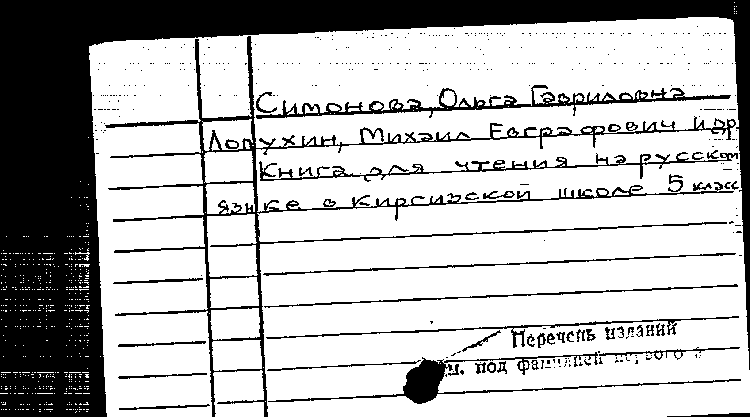 Симонова, Ольга Гавриловна
Лопухин, Михаил Евграфович и др.
Книга для чтения на русском
языке в киргизской школе 5 класс
Перечень изданий
см. под фамилией первого